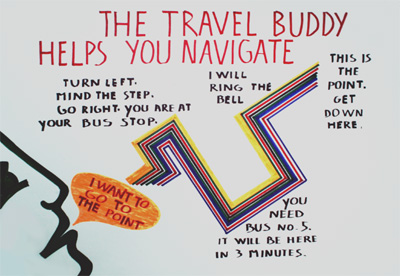 THE TRAVEL BUDDY
HELPS YOU NAVIGATE
TURN LEFT.
MIND THE STEP.
GO RIGHT. YOU ARE AT
YOUR BUS STOP.
I WILL
RING THE
BELL
THIS IS
THE
POINT.
GET
DOWN
HERE.
I WANT TO
GO TO
THE POINT
YOU
NEED
BUS NO. 5.
IT WILL BE HERE
IN 3 MINUTES.